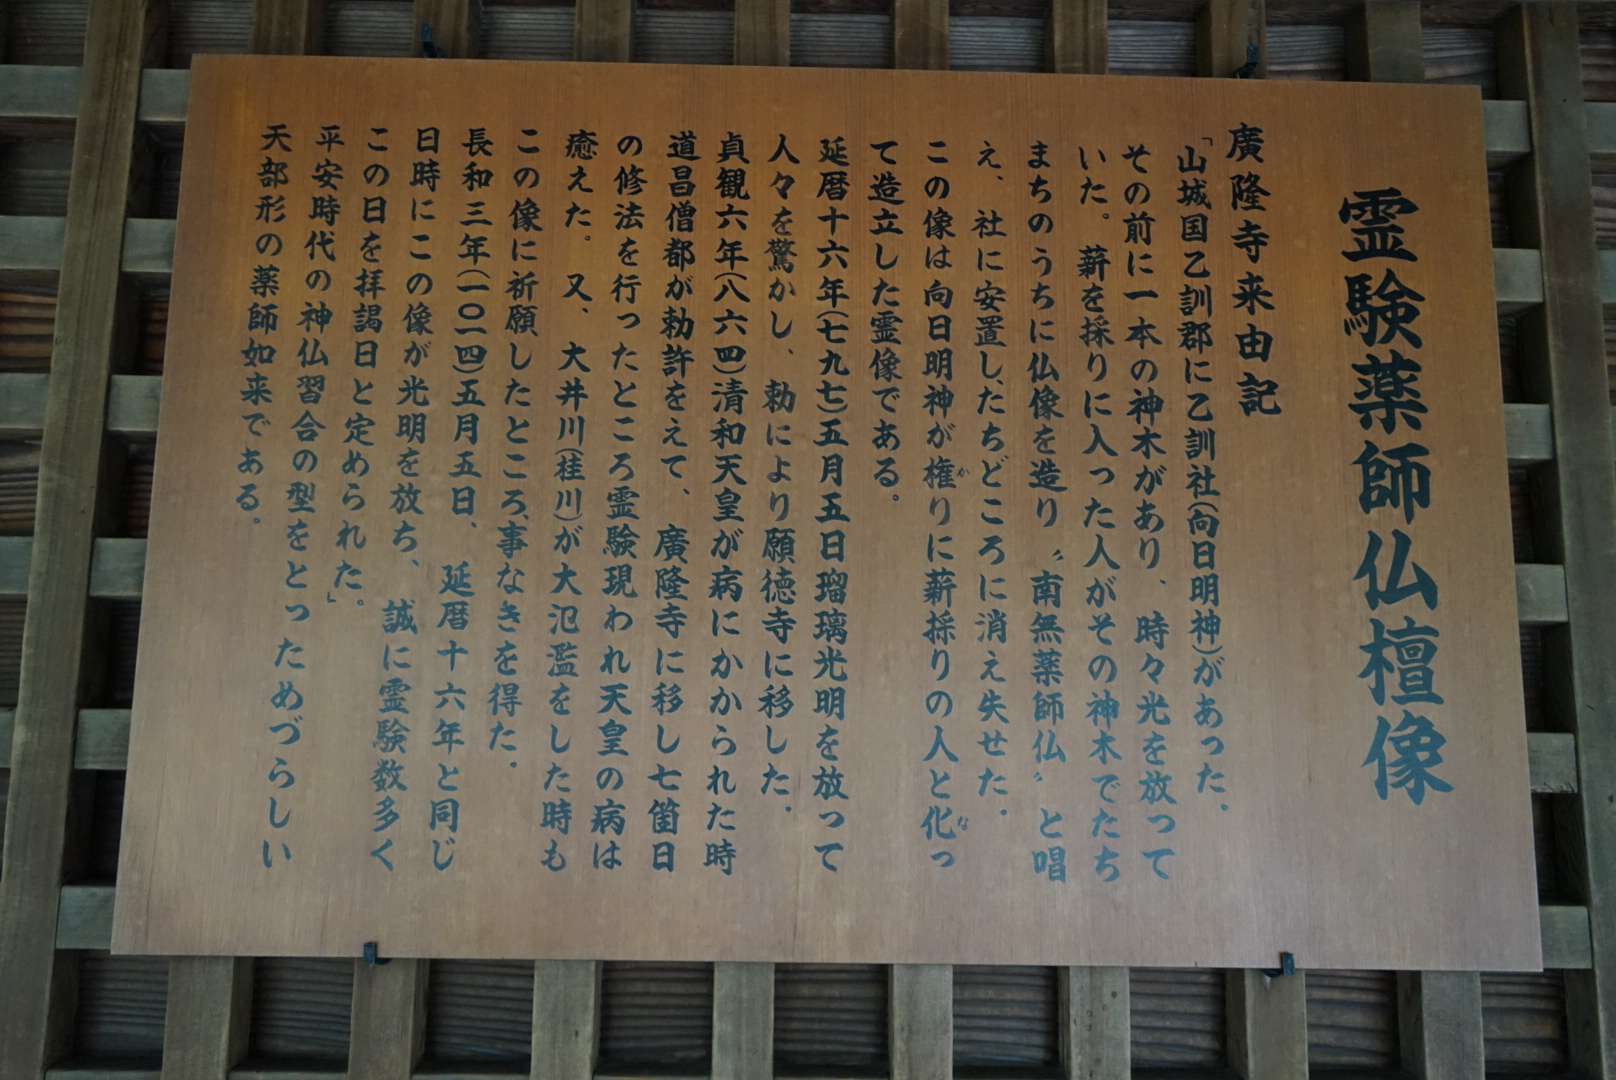 霊験薬師仏檀像
廣隆寺来由記
「山城国乙訓郡に乙訓社(向日明神)があった。
その前に一本の神木があり、時々光を放って
いた。薪を採りに入った人がその神木でたち
まちのうちに仏像を造り〝南無薬師仏〟と唱
え、社に安置し、たちどころに消え失せた。
この像は向日明神が権(か)りに薪採りの人と化(な)っ
て造立した霊像である。
延暦十六年(七九七)五月五日瑠璃光明を放って
人々を驚かし、勅により願徳寺に移した。
貞観六年(八六四)清和天皇が病にかかられた時
道昌僧都が勅許をえて、廣隆寺に移し七箇日
の修法を行ったところ霊験現われ天皇の病は
癒えた。又、大井川(桂川)が大氾濫をした時も
この像に祈願したところ、事なきを得た。
長和三年(一〇一四)五月五日、延暦十六年と同じ
日時にこの像が光明を放ち、誠に霊験数多く
この日を拝謁日と定められた。」
平安時代の神仏習合の型をとっためづらしい
天部形の薬師如来である。